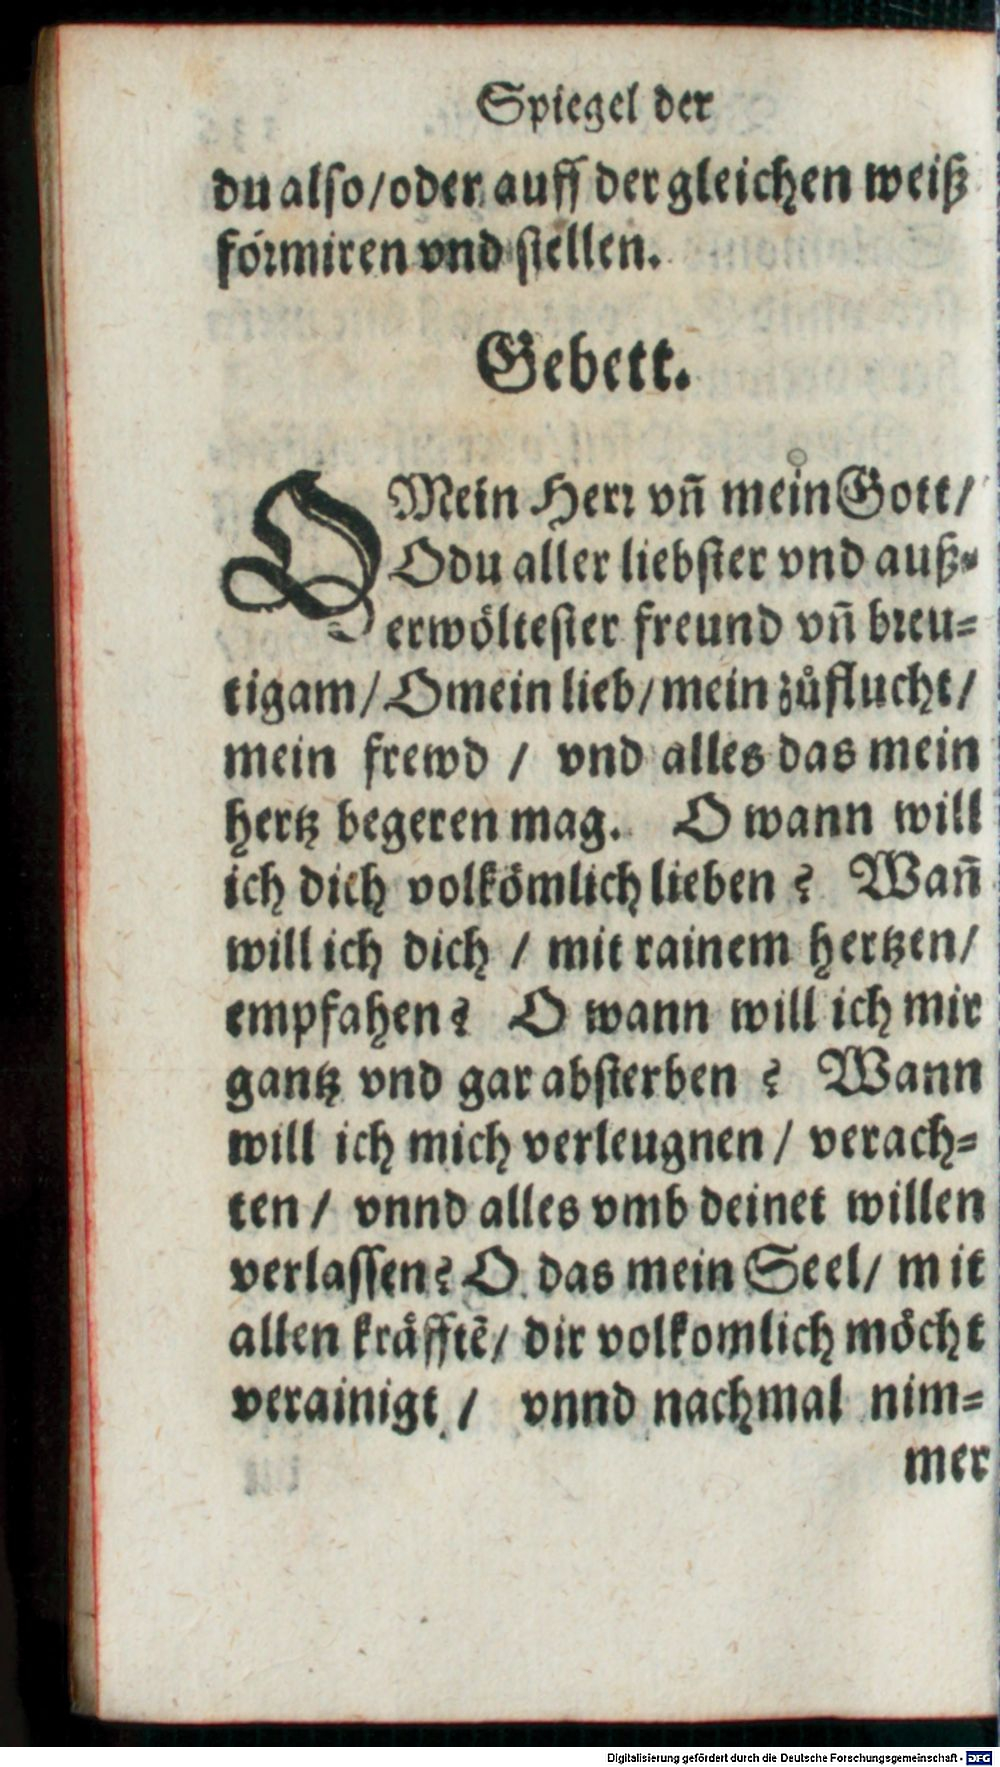 Spiegel der
du also/oder auff der gleichen weiß
formiren vnd stellen.
Gebett.
O Mein Herr vñ mein Gott/
O du aller liebster vnd auß-
erwöltester freund vñ breu-
tigam/ O mein lieb/ mein zůflucht/
mein frewd / vnd alles das mein
hertz begeren mag. O wann will
ich dich volkõmlich lieben? Wañ
will ich dich / mit rainem hertzen/
empfahen? O wann will ich mir
gantz vnd gar absterben? Wann
will ich mich verleugnen / verach-
ten / vnnd alles vmb deinet willen
verlassen? O das mein Seel/ mit
allen kräfftē/ dir volkomlich möcht
verainigt / vnnd nachmal nim-
mer
Digitalisierung gefördert durch die Deutsche Forschungsgemeinschaft - DFG